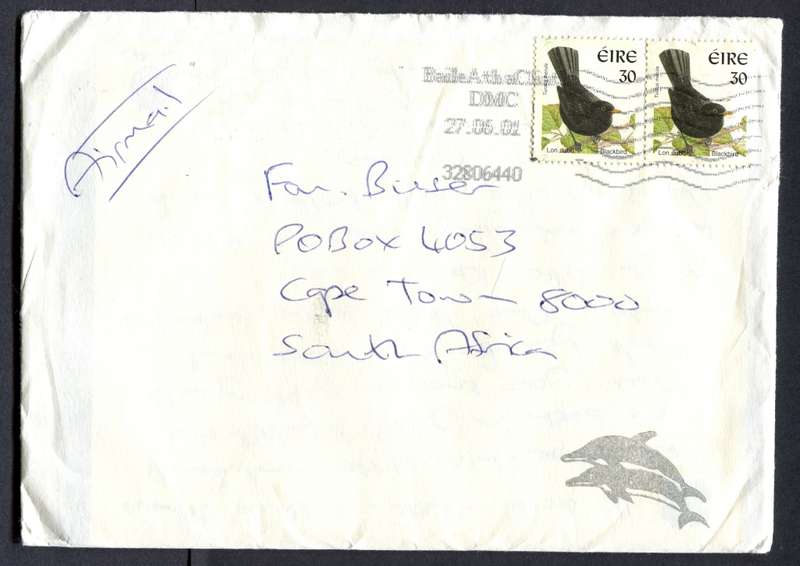 Airmail
Baile Atha Cliath
DMC
27.06.01
32806440
ÉIRE
30
Lon dubh Blackbird
ÉIRE
30
Lon dubh Blackbird
Fam.
PO Box 4053
Cape Town 8000
South Africa